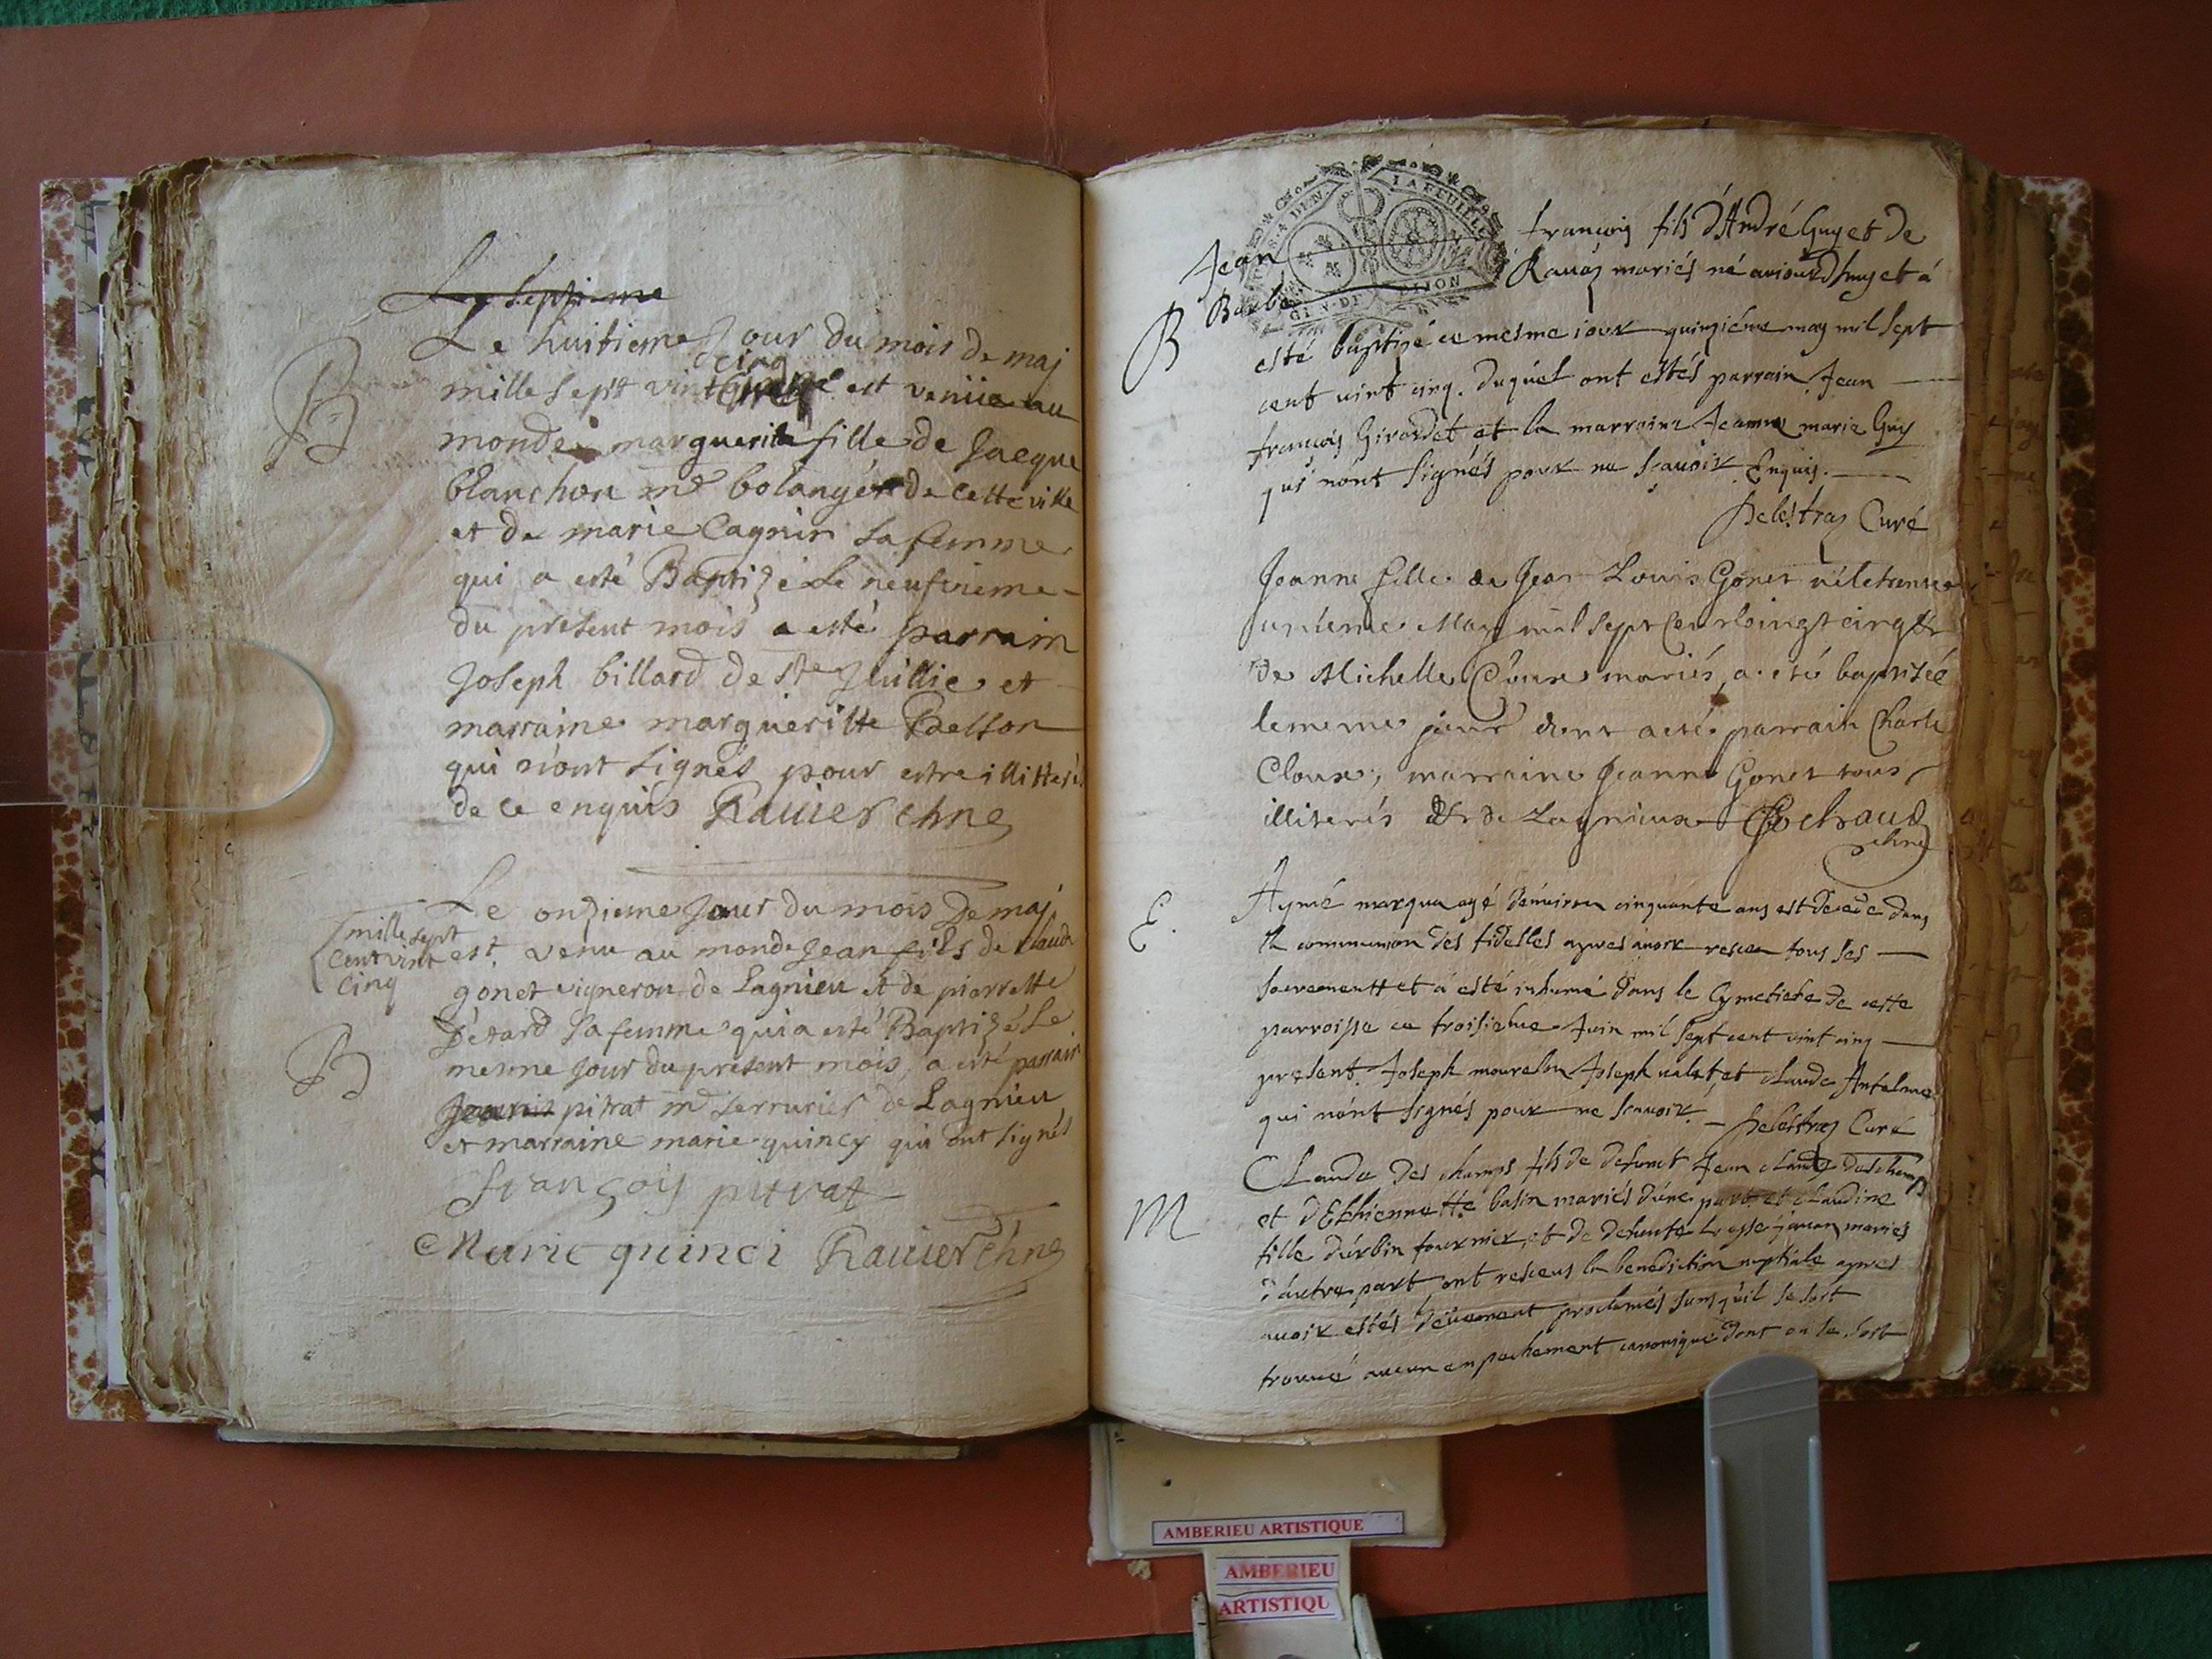 Le septieme
Le huitieme Jour du mois de maj
cinq
mille sept vint est venüe au
monde marguerite fille de Jacque
blanchon me bolangér de cette ville
et de marie Cagnin sa femme
qui a esté Baptizé Le neufvieme
du present mois a esté parrain
Joseph billard de ste Jullie et
marraine margueritte
qui n'ont signés pour estre illitterés
de ce enquis Ravier chne
B
Le onzieme Jour du mois De maj
mille sept
cent vint
cinq
est venu au monde Jean fils de claude
gonet vigneron de Lagnieu et de pierrette
Dérard sa femme qui a esté Baptizé Le
mesme Jour du present mois, a esté parrain
pitrat me serrurier de Lagnieu
et marraine marie quincy qui ont signés
B
françois pitrat
Marie quinci Ravier chne
LA FEUILLE
GEN. DE DIJON
Jean françois fils d'André Guy et de
Barbe Ravaz mariés né aujourdhuy et à
B
esté baptizé ce mesme iour quinziéme may mil sept
cent vint cinq. duquel ont estés parrain Jean
françois Girardet et la marraine Jeanne marie Guy
qui n'ont signés pour ne sçavoir Enquis.
Delestraz Curé
Jeanne fille de Jean Louis Gonet né le trente
unieme May mil sept cent vingt cinq et
de Michelle mariés, a eté baptisée
le meme jour dont a eté parrain Charle
Cloux, marraine Jeanne Gonet tous
illiterés & de Lagnieux
chne
E.
Aymé marqua agé d'énviron cinquante ans est decedé dans
la communion des fidelles apres avoir receu tous ses
sacrements et à esté inhumé dans le Cymetiere de cette
parroisse ce troisieme Juin mil sept cent vint cinq
present Joseph mourelon Joseph valet, et claude Antelme
qui n'ont signés pour ne sçavoir. Delestraz Curé
M
Claude Des champs fils de defunct Jean claude Deschamps
et d'Esthiennette basin mariés d'une part et claudine
fille d'urbin fournier, et de defunte mariés
d'autre part ont receus la benediction nuptiale apres
avoir estés deüement proclamés sans qu'il se soit
trouvé aucun empechement canonique dont on se soit
AMBERIEU ARTISTIQUE
AMBERIEU
ARTISTIQU